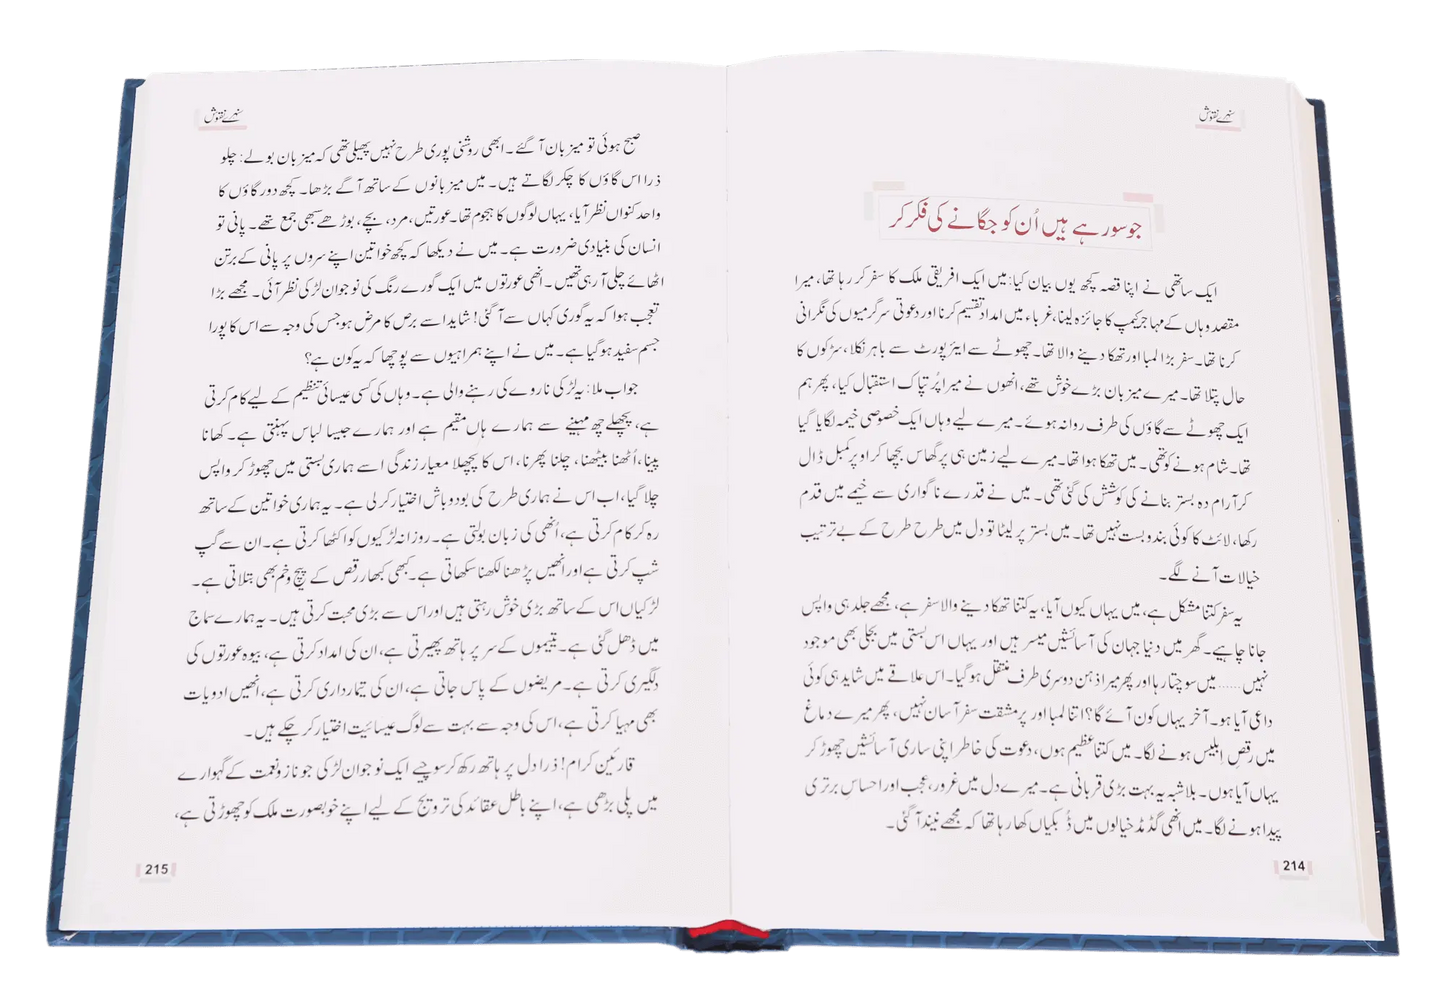 سنہرے نقوش
جو سو رہے ہیں اُن کو جگانے کی فکر کر
ایک ساتھی نے اپنا قصہ کچھ یوں بیان کیا: میں ایک افریقی ملک کا سفر کر رہا تھا، میرا
مقصد وہاں کے مہاجر کیمپ کا جائزہ لینا، غرباء میں امداد تقسیم کرنا اور دعوتی سرگرمیوں کی نگرانی
کرنا تھا۔ سفر بڑا لمبا اور تھکا دینے والا تھا۔ چھوٹے سے ایئرپورٹ سے باہر نکلا، سڑکوں کا
حال پتلا تھا۔ میرے میزبان بڑے خوش تھے، انھوں نے میرا پُرتپاک استقبال کیا، پھر ہم
ایک چھوٹے سے گاؤں کی طرف روانہ ہوئے۔ میرے لیے وہاں ایک خصوصی خیمہ لگایا گیا
تھا۔ شام ہونے کو تھی۔ میں تھکا ہوا تھا۔ میرے لیے زمین ہی پر گھاس بچھا کر اوپر کمبل ڈال
کر آرام دہ بستر بنانے کی کوشش کی گئی تھی۔ میں نے قدرے ناگواری سے خیمے میں قدم
رکھا، لائٹ کا کوئی بندوبست نہیں تھا۔ میں بستر پر لیٹا تو دل میں طرح طرح کے بے ترتیب
خیالات آنے لگے۔
یہ سفر کتنا مشکل ہے، میں یہاں کیوں آیا، یہ کتنا تھکا دینے والا سفر ہے، مجھے جلد ہی واپس
جانا چاہیے۔ گھر میں دنیا جہان کی آسائشیں میسر ہیں اور یہاں اس بستی میں بجلی بھی موجود
نہیں...... میں سوچتا رہا اور پھر میرا ذہن دوسری طرف منتقل ہو گیا۔ اس علاقے میں شاید ہی کوئی
داعی آیا ہو۔ آخر یہاں کون آئے گا؟ اتنا لمبا اور پرمشقت سفر آسان نہیں، پھر میرے دماغ
میں رقصِ ابلیس ہونے لگا۔ میں کتنا عظیم ہوں، دعوت کی خاطر اپنی ساری آسائشیں چھوڑ کر
یہاں آیا ہوں۔ بلاشبہ یہ بہت بڑی قربانی ہے۔ میرے دل میں غرور، عجب اور احساسِ برتری
پیدا ہونے لگا۔ میں انھی گڈمڈ خیالوں میں ڈبکیاں کھا رہا تھا کہ مجھے نیند آ گئی۔
214
سنہرے نقوش
صبح ہوئی تو میزبان آ گئے۔ ابھی روشنی پوری طرح نہیں پھیلی تھی کہ میزبان بولے: چلو
ذرا اس گاؤں کا چکر لگاتے ہیں۔ میں میزبانوں کے ساتھ آگے بڑھا۔ کچھ دور گاؤں کا
واحد کنواں نظر آیا، یہاں لوگوں کا ہجوم تھا۔ عورتیں، مرد، بچے، بوڑھے سبھی جمع تھے۔ پانی تو
انسان کی بنیادی ضرورت ہے۔ میں نے دیکھا کہ کچھ خواتین اپنے سروں پر پانی کے برتن
اٹھائے چلی آ رہی تھیں۔ انھی عورتوں میں ایک گورے رنگ کی نوجوان لڑکی نظر آئی۔ مجھے بڑا
تعجب ہوا کہ یہ گوری کہاں سے آ گئی! شاید اسے برص کا مرض ہو جس کی وجہ سے اس کا پورا
جسم سفید ہو گیا ہے۔ میں نے اپنے ہمراہیوں سے پوچھا کہ یہ کون ہے؟
جواب ملا: یہ لڑکی ناروے کی رہنے والی ہے۔ وہاں کی کسی عیسائی تنظیم کے لیے کام کرتی
ہے، پچھلے چھ مہینے سے ہمارے ہاں مقیم ہے اور ہمارے جیسا لباس پہنتی ہے۔ کھانا
پینا، اُٹھنا بیٹھنا، چلنا پھرنا، اس کا پچھلا معیار زندگی اسے ہماری بستی میں چھوڑ کر واپس
چلا گیا، اب اس نے ہماری طرح کی بودوباش اختیار کر لی ہے۔ یہ ہماری خواتین کے ساتھ
رہ کر کام کرتی ہے، اُنھی کی زبان بولتی ہے۔ روزانہ لڑکیوں کو اکٹھا کرتی ہے۔ ان سے گپ
شپ کرتی ہے اور انھیں پڑھنا لکھنا سکھاتی ہے۔ کبھی کبھار رقص کے پیچ و خم بھی بتلاتی ہے۔
لڑکیاں اس کے ساتھ بڑی خوش رہتی ہیں اور اس سے بڑی محبت کرتی ہیں۔ یہ ہمارے سماج
میں ڈھل گئی ہے۔ یتیموں کے سر پر ہاتھ پھیرتی ہے، ان کی امداد کرتی ہے، بیوہ عورتوں کی
دلگیری کرتی ہے۔ مریضوں کے پاس جاتی ہے، ان کی تیمارداری کرتی ہے، انھیں ادویات
بھی مہیا کرتی ہے، اس کی وجہ سے بہت سے لوگ عیسائیت اختیار کر چکے ہیں۔
قارئین کرام! ذرا دل پر ہاتھ رکھ کر سوچیے ایک نوجوان لڑکی جو نازونعمت کے گہوارے
میں پلی بڑھی ہے، اپنے باطل عقائد کی ترویج کے لیے اپنے خوبصورت ملک کو چھوڑتی ہے،
215